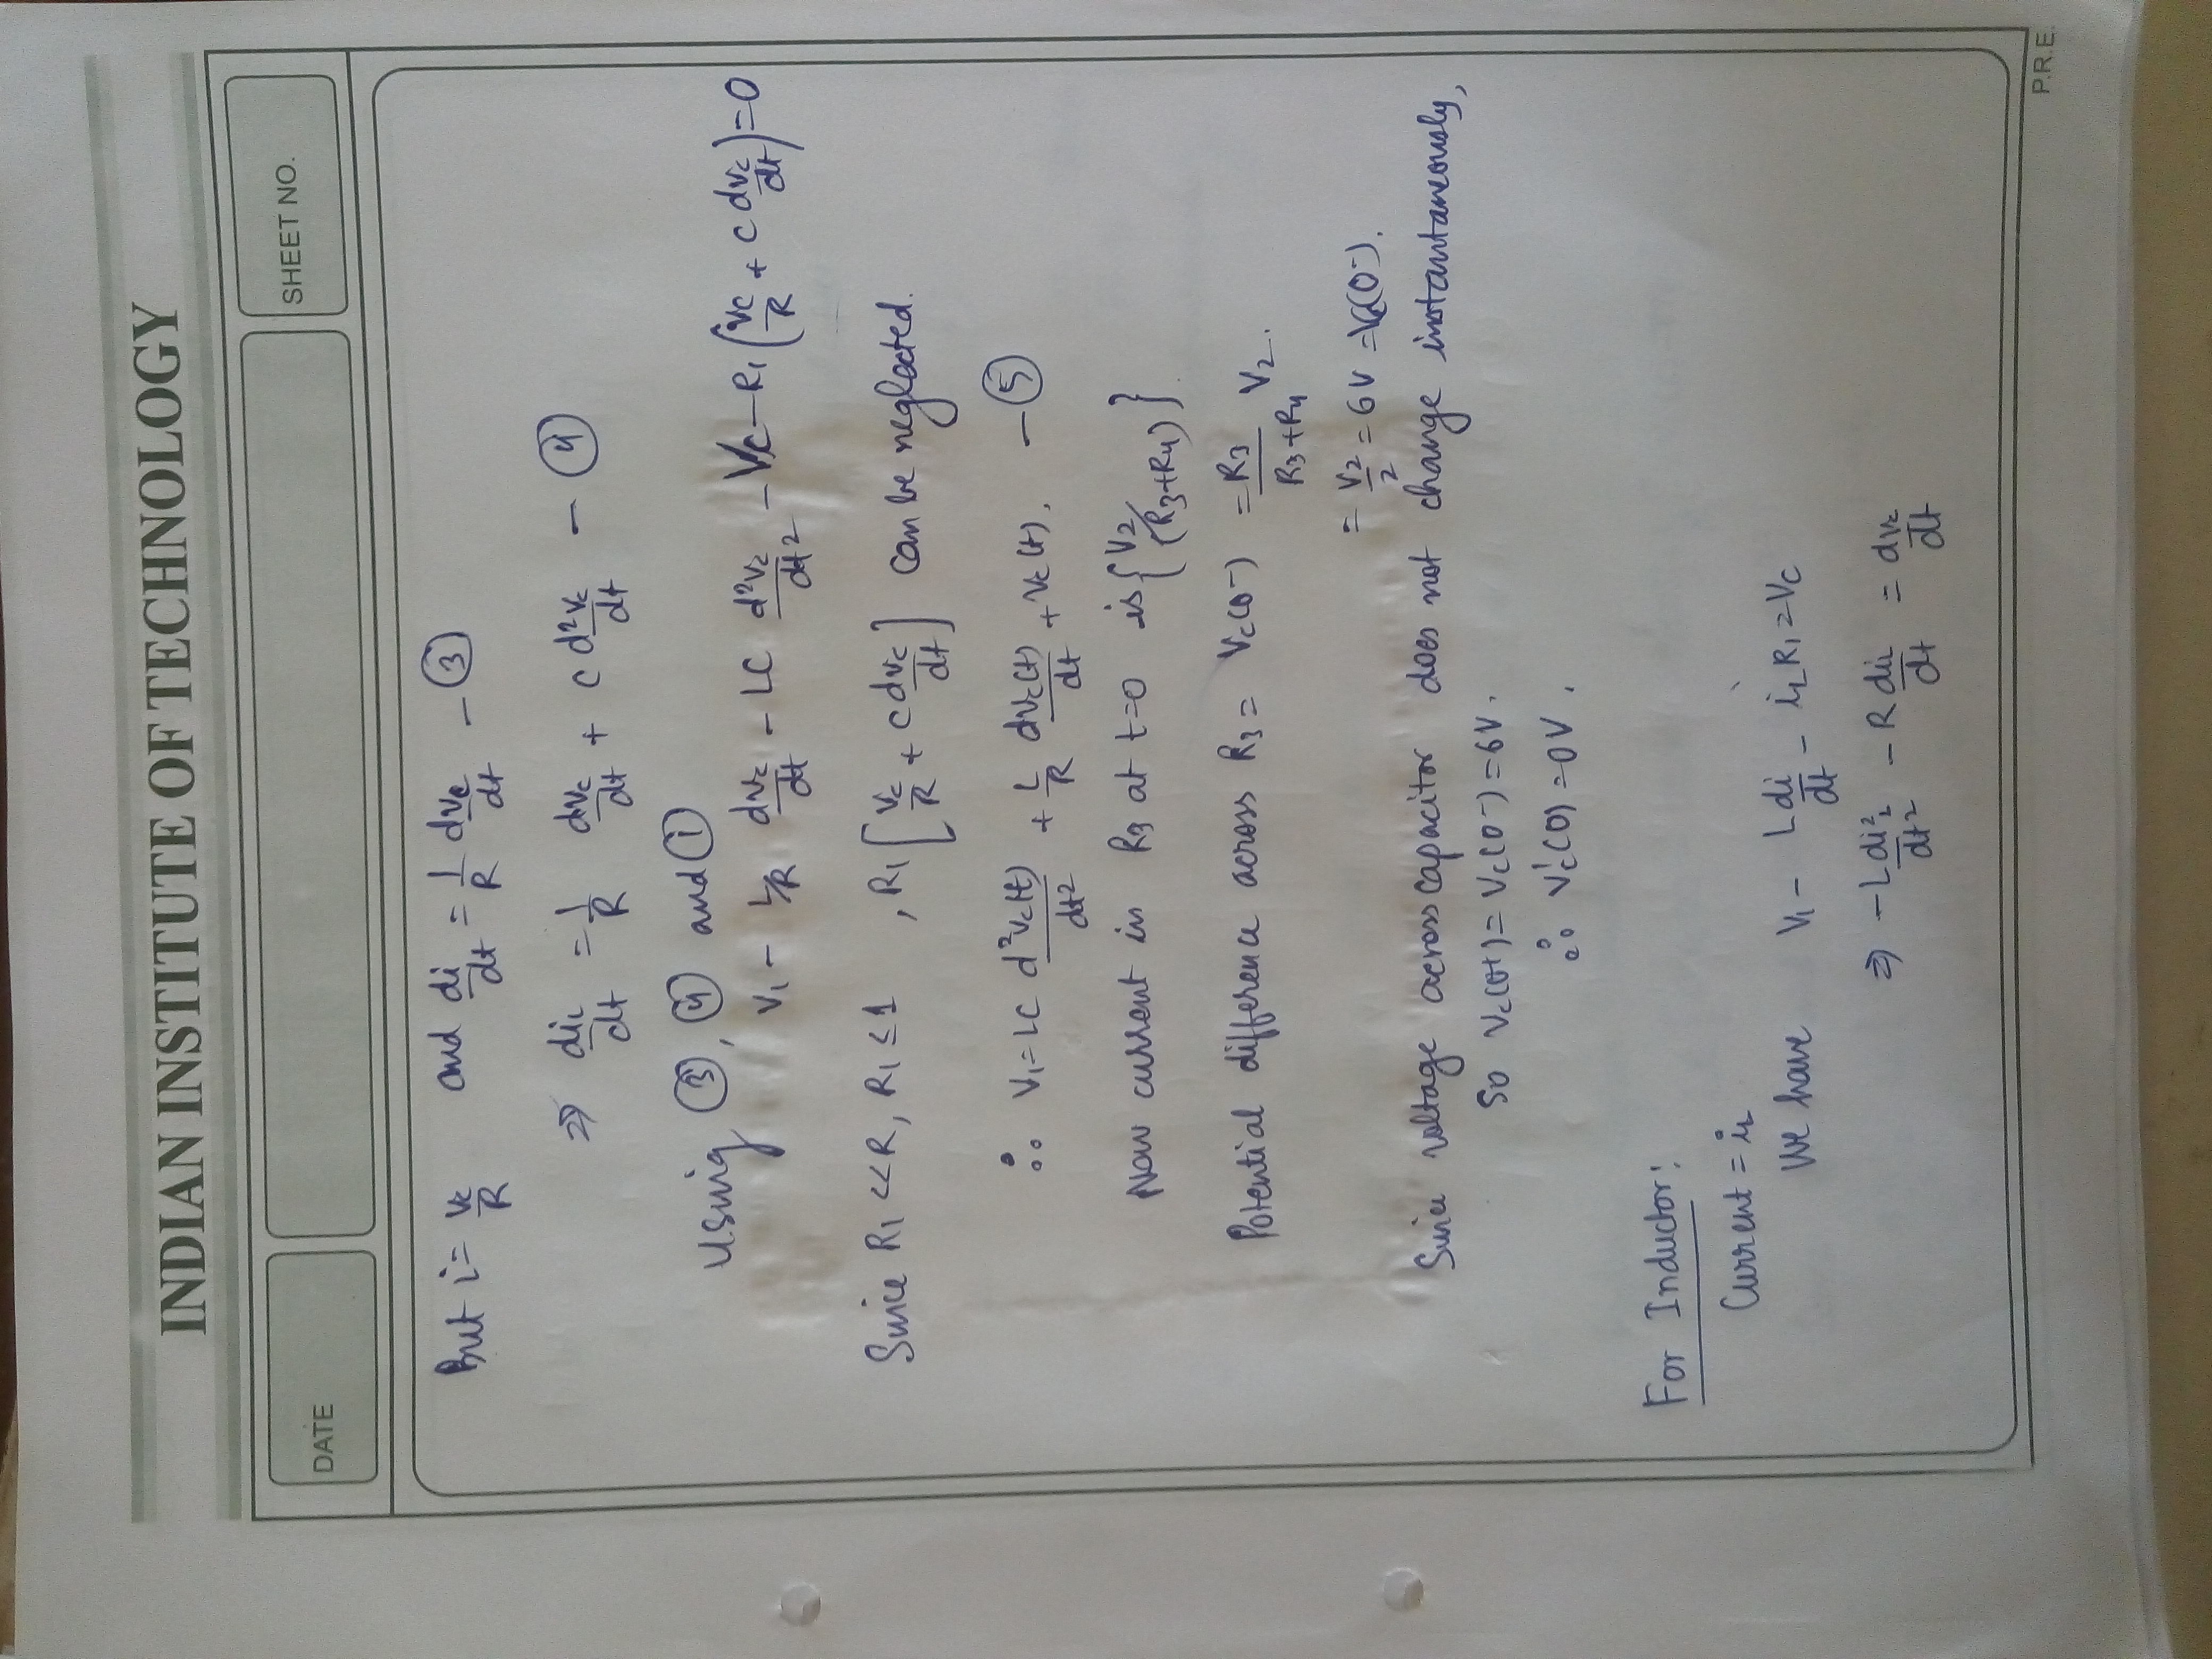 INDIAN INSTITUTE OF TECHNOLOGY
DATE
SHEET NO.
But i = Vc/R and di/dt = 1/R dVc/dt - ③
⇒ diL/dt = 1/R dVc/dt + C d²Vc/dt - ④
Using ③, ④ and ①
V₁ - L/R dVc/dt - LC d²Vc/dt² - Vc - R₁ (Vc/R + C dVc/dt) = 0
Since R₁ << R, R₁ ≤ 1 , R₁ [Vc/R + C dVc/dt] can be neglected.
∴ V₁ = LC d²Vc(t)/dt² + L/R dVc(t)/dt + Vc(t). - ⑤
Now current in R₃ at t=0 is {V₂/(R₃+R₄)}.
Potential difference across R₃ = Vc(0⁻) = R₃/R₃+R₄ V₂.
= V₂/2 = 6V = Vc(0⁻).
Since voltage across capacitor does not change instantaneously,
So Vc(0+) = Vc(0⁻) = 6V.
∴ Vc'(0) = 0V.
For Inductor:
Current = iL
We have V₁ - L di/dt - iL R₁ = Vc
⇒ -L diL²/dt² - R diL/dt = dVc/dt
P.R.E.